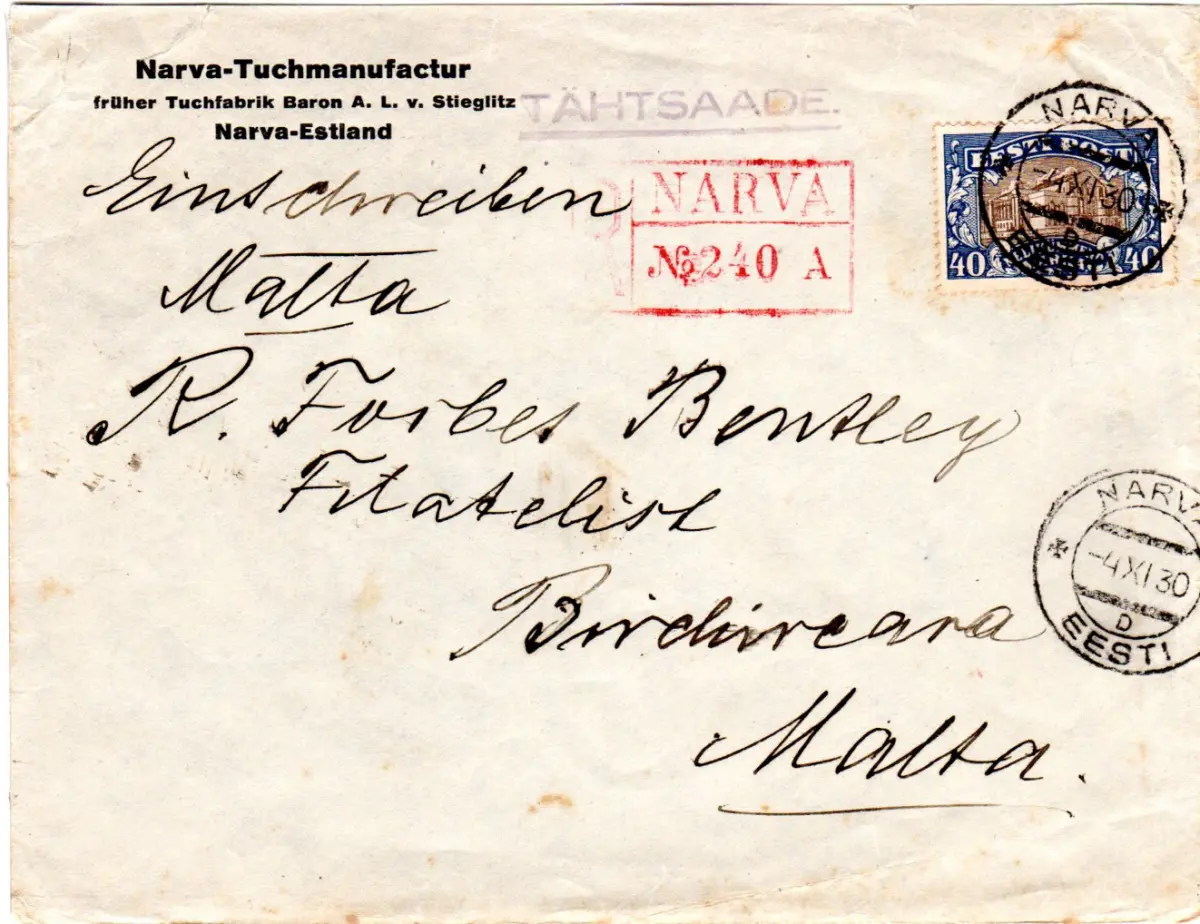 Narva-Tuchmanufactur
früher Tuchfabrik Baron A. L. v. Stieglitz
Narva-Estland
TÄHTSAADE.
Einschreiben
R NARVA
№240 A
EESTI POST
40 40
NARVA
-4XI30
D
EESTI
Malta
R. Forbes Bentley
Filatelist
Birchircara
Malta.
NARVA
-4XI30
D
EESTI